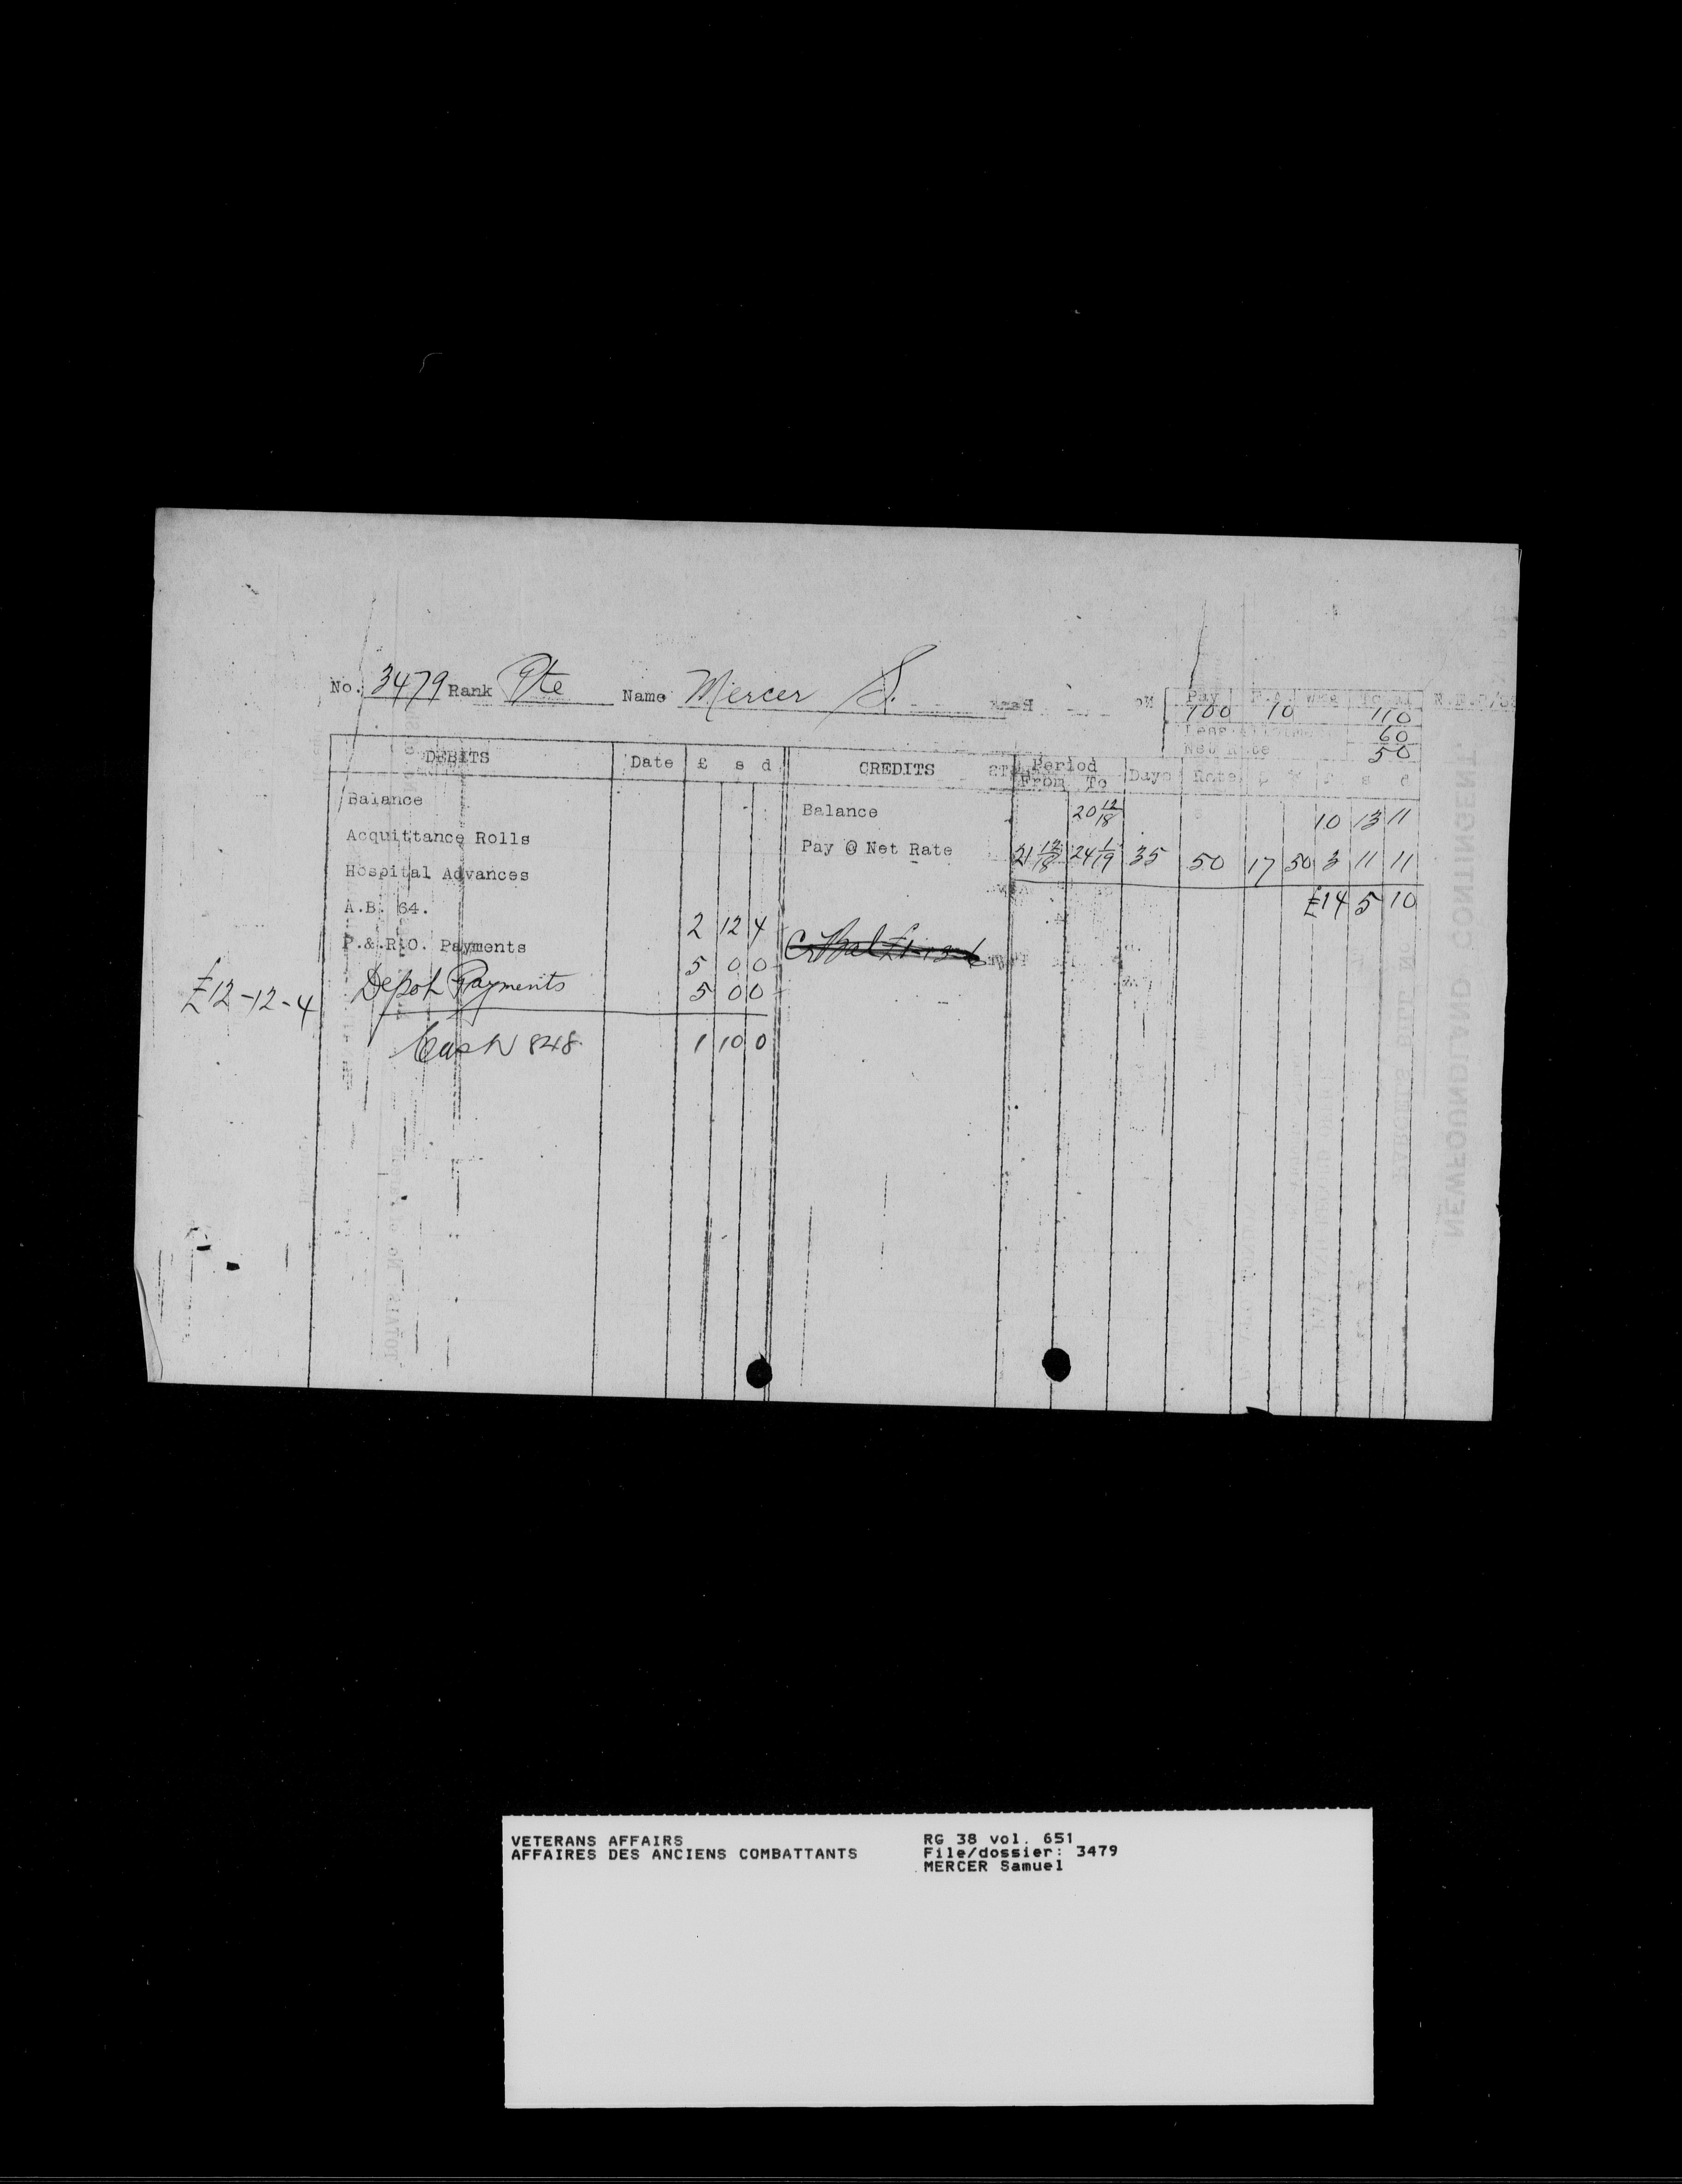 No. 3479 Rank Pte Name Mercer S.
Pay F.A. Wks Total N.F.P/38
100 10 110
Less Allotment 60
Net Rate 50
DEBITS Date £ s d CREDITS Period From To Days Rate $ £ s d
Balance
Balance 20 12/18 10 13 11
Acquittance Rolls
Pay @ Net Rate 21 12/18 24 1/19 35 50 17 50 3 11 11
Hospital Advances
£14 5 10
A.B. 64. 2 12 4
P.& R.O. Payments 5 0 0
£12-12-4 Depot Payments 5 0 0
Cash 848 1 10 0
NEWFOUNDLAND CONTINGENT.
VETERANS AFFAIRS
AFFAIRES DES ANCIENS COMBATTANTS
RG 38 vol. 651
File/dossier: 3479
MERCER Samuel